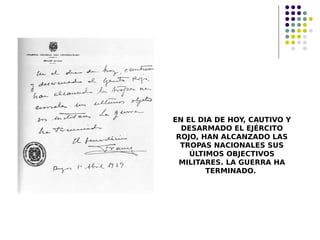 En el día de hoy, cautivo
y desarmado el Ejército Rojo,
han alcanzado las tropas na-
cionales sus últimos objeti-
vos militares. La guerra
ha terminado.
El Generalísimo
Franco
Burgos 1º Abril 1939
EN EL DIA DE HOY, CAUTIVO Y
DESARMADO EL EJÉRCITO
ROJO, HAN ALCANZADO LAS
TROPAS NACIONALES SUS
ÚLTIMOS OBJECTIVOS
MILITARES. LA GUERRA HA
TERMINADO.